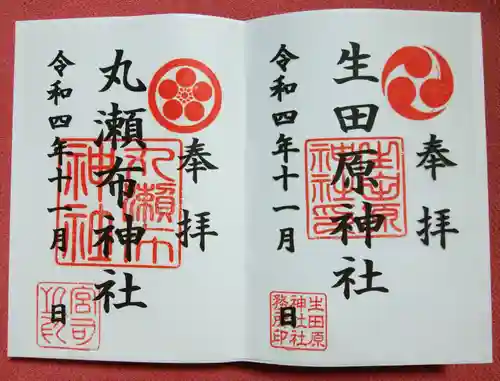 奉拝
生田原神社
令和四年十一月
日
生田原
神社社
務所印
奉拝
丸瀬布神社
令和四年十一月
日
丸瀬布
神社
宮司
之印